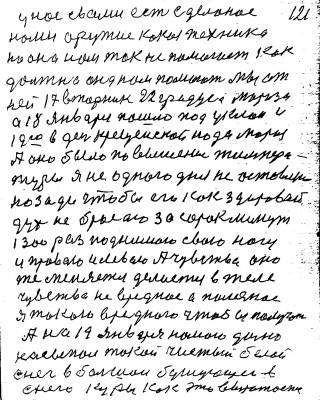 121
у нас с вами ест сделаное
нами оружие какая техника
но она нам так не помогает как
должна она нам помогает мы от
ней 17 вторник 22 градуса мороза
а 18 января пошло под уклон и
19ое в ден крещенской вода мороз
А оно было повешение темпера-
туры я не одного дня не оставил
позади чтобы его как здоровай
дух не бросаю за сорок минут
1300 раз поднимаю свою ногу
и праваю и леваю А чувства оно
же меняется делается в теле
чувства не вредное а полезное
я такого вредного чтобы получат
А на 19 января намого дано
насыпом такой чистый белой
снег в большом бушующее в
снего куры как это видится